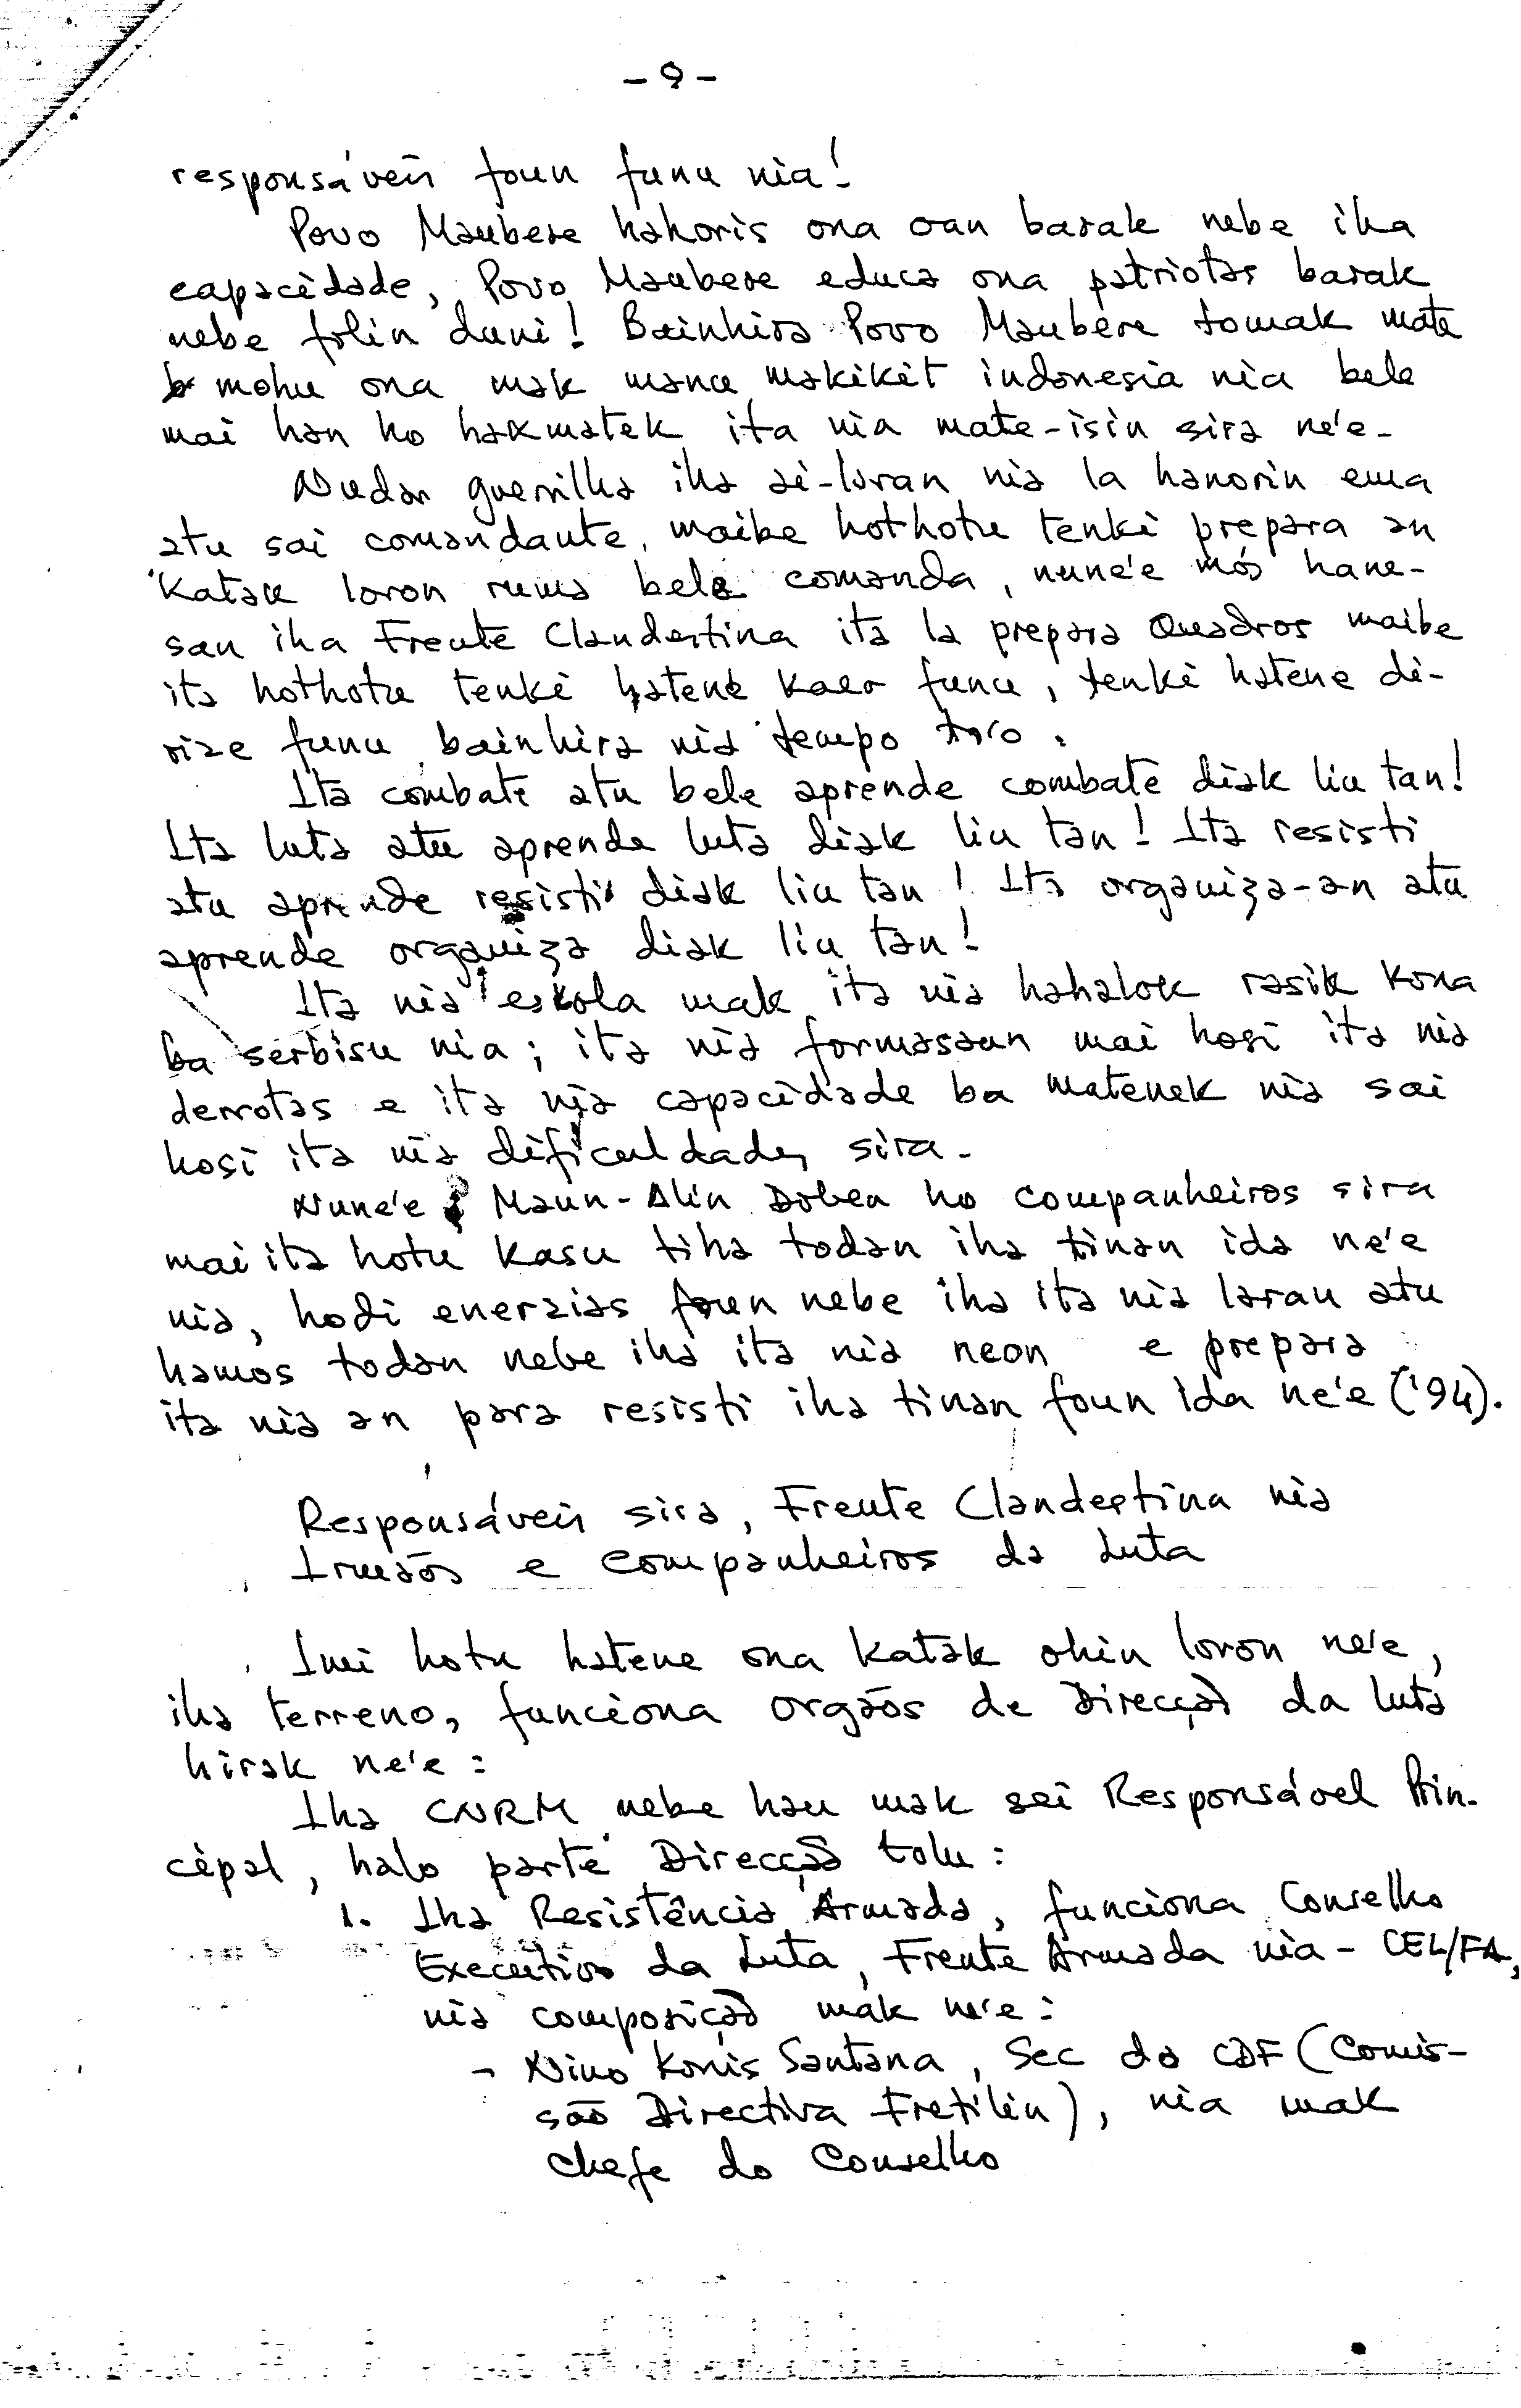 - 9 -
responsáveis foun funu nia!
Povo Maubere hahoris ona oan barak nebe iha
capacidade, Povo Maubere educa ona patriotas barak
nebe folin duni! Bainhira Povo Maubere tomak mate
mohu ona mak manu makikit indonesia nia bele
mai han ho hakmatek ita nia mate-isin sira ne'e.
Nudar guerrilha iha ai-laran nia la hanorin ema
atu sai comandante, maibe hothotu tenki prepara an
katak loron ruma bele comanda, nune'e mós hane-
san iha Frente Clandestina ita la prepara Quadros maibe
ita hothotu tenki hatene kaer funu, tenki hatene di-
rize funu bainhira nia tempo to'o.
Ita combate atu bele aprende combate diak liu tan!
Ita luta atu aprende luta diak liu tan! Ita resisti
atu aprende resisti diak liu tan! Ita organiza-an atu
aprende organiza diak liu tan!
Ita nia eskola mak ita nia hahalok rasik kona
ba serbisu nia; ita nia formasaun mai hosi ita nia
derrotas e ita nia capacidade ba matenek nia sai
hosi ita nia dificuldades sira.
Nune'e, Maun-Alin Doben ho companheiros sira
mai ita hotu kasu tiha todan iha tinan ida ne'e
nia, hodi enerzias foun nebe iha ita nia laran atu
hamos todan nebe iha ita nia neon e prepara
ita nia an para resisti iha tinan foun ida ne'e ('94).
Responsáveis sira, Frente Clandestina nia
Irmãos e companheiros da Luta
Imi hotu hatene ona katak ohin loron ne'e,
iha terreno, funciona orgãos de Direcção da luta
hirak ne'e:
Iha CNRM nebe hau mak sei Responsável Prin-
cipal, halo parte Direcção tolu:
1. Iha Resistência Armada, funciona Conselho
Executivo da Luta, Frente Armada nia - CEL/FA,
nia composição mak ne'e:
- Nino Konis Santana, Sec da CDF (Comis-
são Directiva Fretilin), nia mak
chefe do Conselho